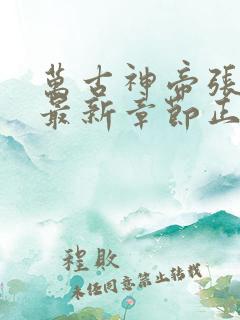 萬古神帝張
最新章節正
程敗
未任同意禁止转载